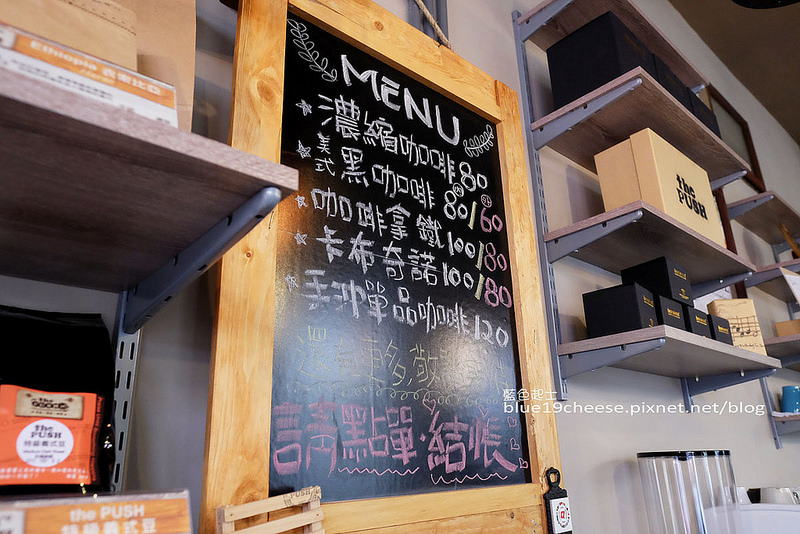 MENU
濃縮咖啡 80
美式黑咖啡 80/60
咖啡拿鐵 100/80
卡布奇諾 100/80
手沖單品咖啡 120
還有更多,敬
請點單·結帳
the PUSH
Ethiopia
the PUSH
the PUSH 特級義式豆
藍色起士
blue19cheese.pixnet.net/blog